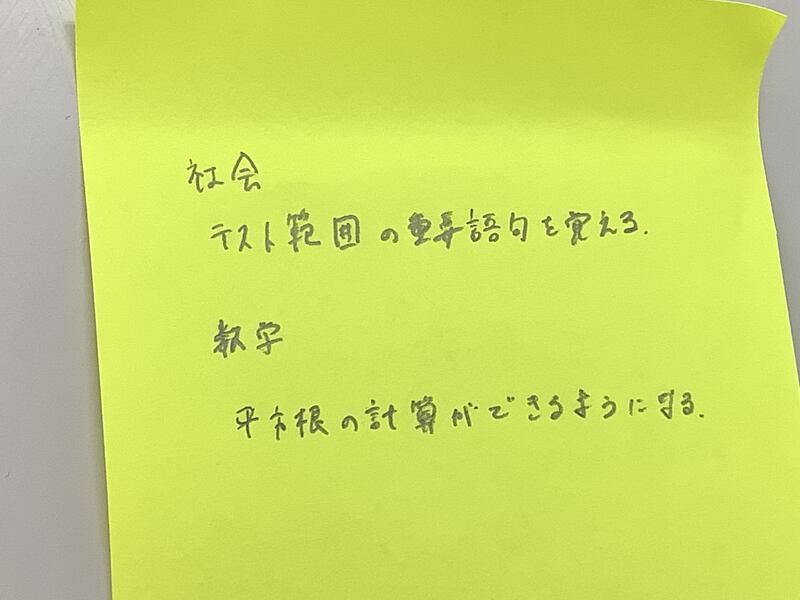 社会
テスト範囲の重要語句を覚える.
数学
平方根の計算ができるようになる.